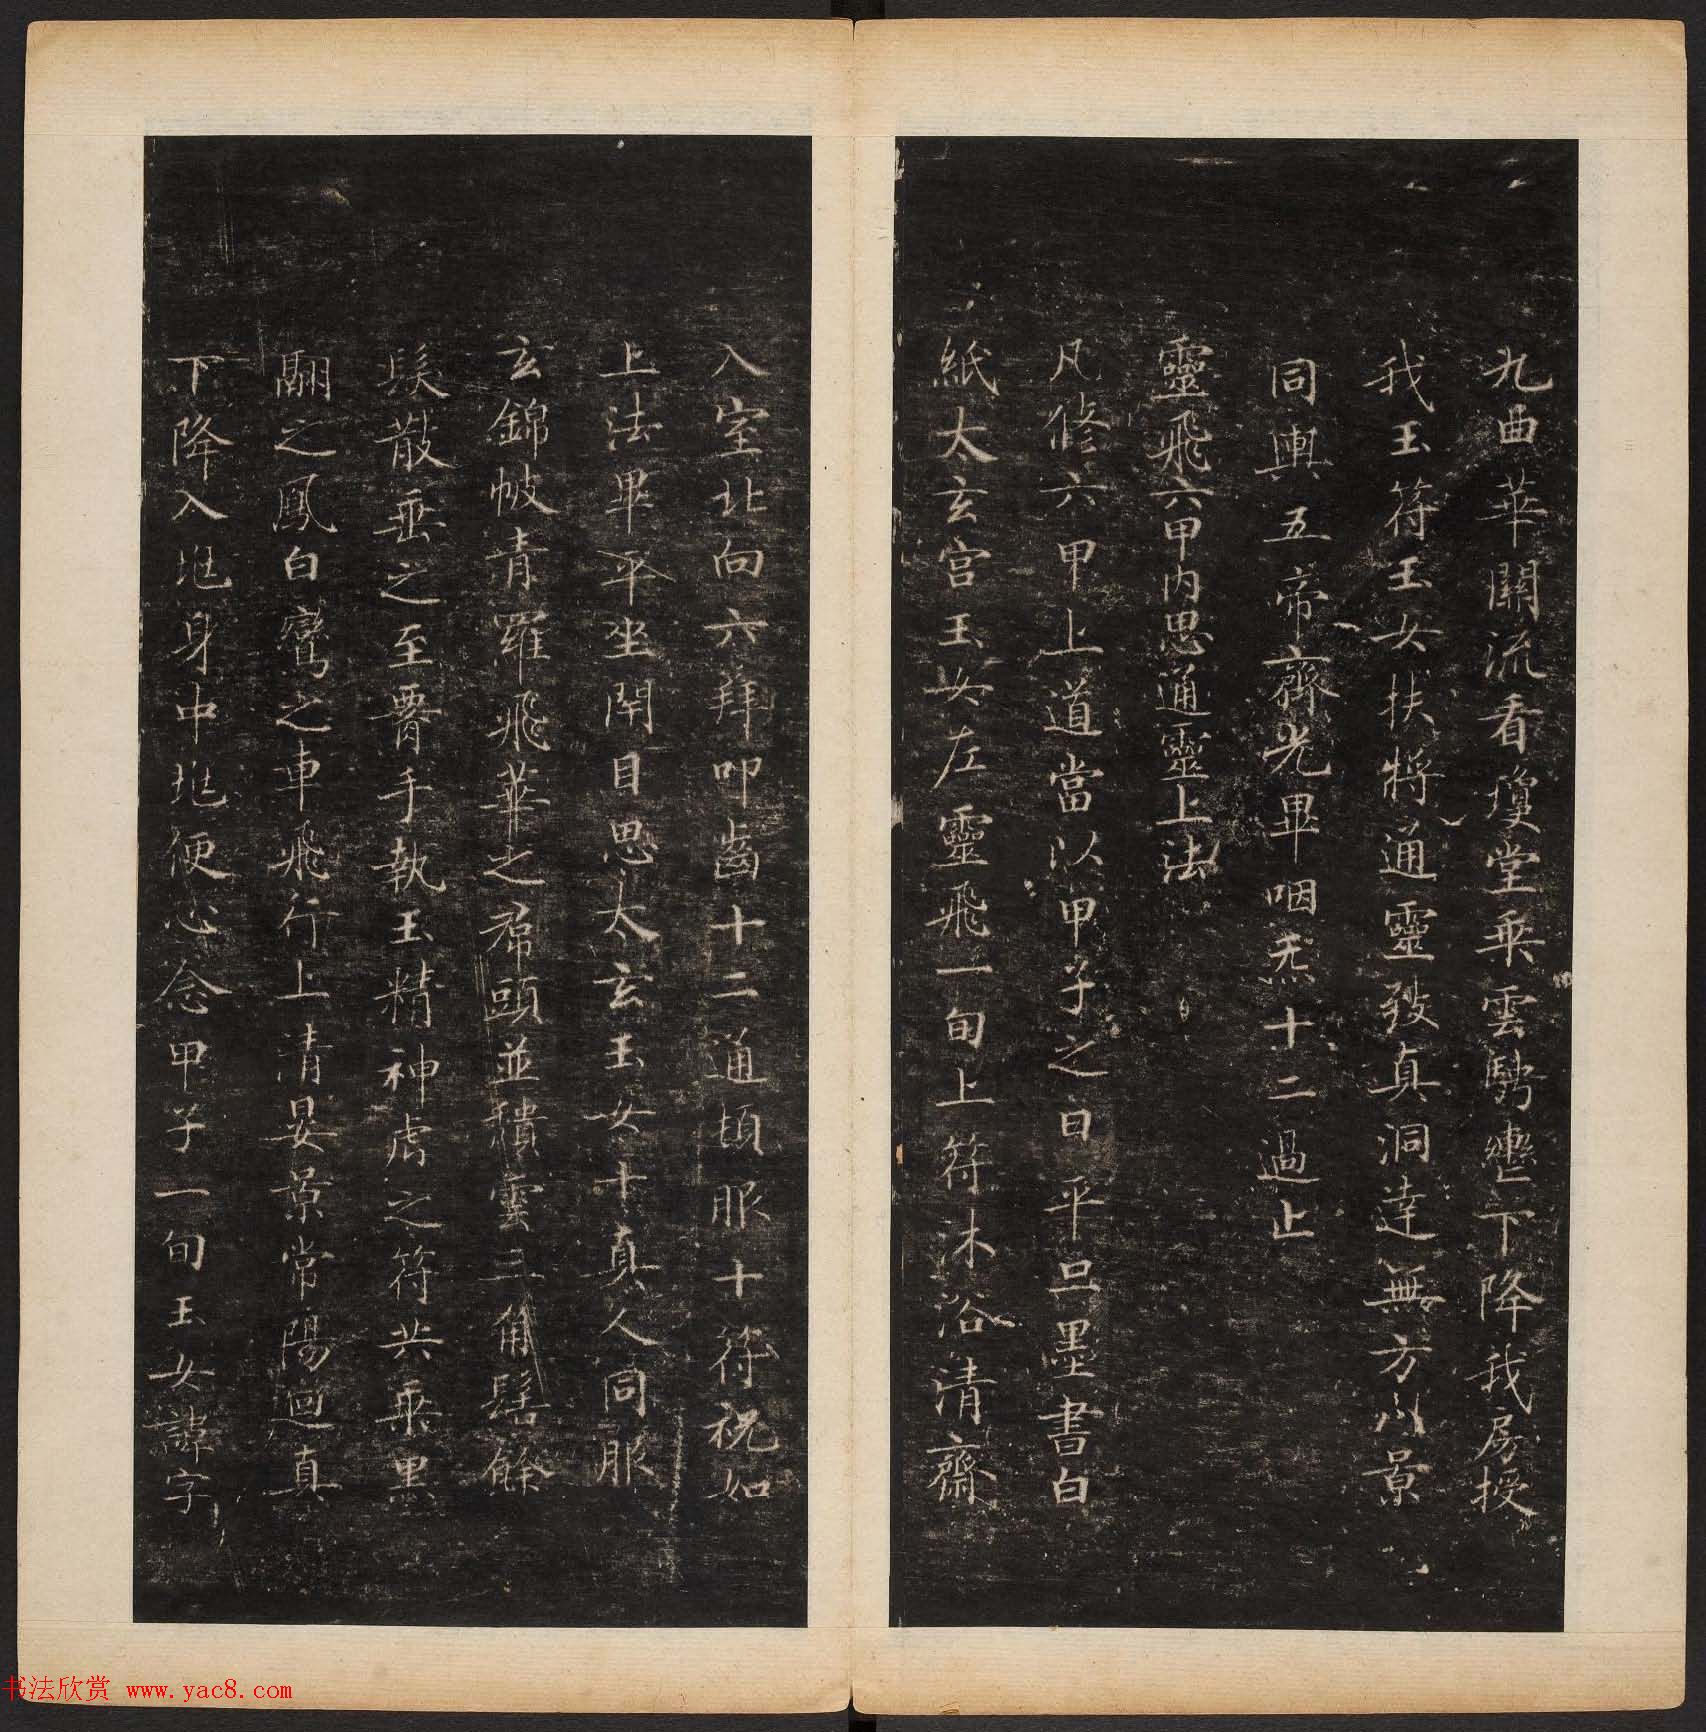 九曲華關流看瓊堂乘雲騁轡下降我房授
我玉符玉女扶將通靈致真洞達無方八景
同輿五帝齊光畢咽炁十二過止
靈飛六甲內思通靈上法
凡修六甲上道當以甲子之日平旦墨書白
紙太玄宮玉女左靈飛一旬上符沐浴清齋
入室北向六拜叩齒十二通頓服十符祝如
上法畢平坐閇目思太玄玉女十真人同服
玄錦帔青羅飛華之帬頭並穨雲三角髻餘
髮散垂之至署手執玉精神虎之符共乘黑
翮之鳳白鸞之車飛行上清晏景常陽迴真
下降入𡵆身中𡵆便心念甲子一旬玉女諱字
书法欣赏 www.yac8.com